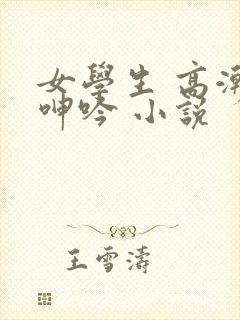 女學生 高潮
呻吟 小說
王雪濤